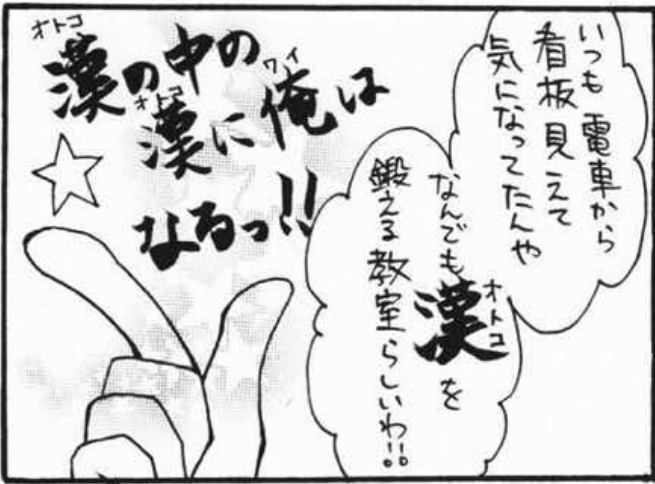 いつも電車から
看板見えて
気になってたんや
なんでも漢を
オトコ
鍛える教室らしいわ!!
オトコ
漢の中の
オトコ ワイ
漢に俺は
なるっ!!